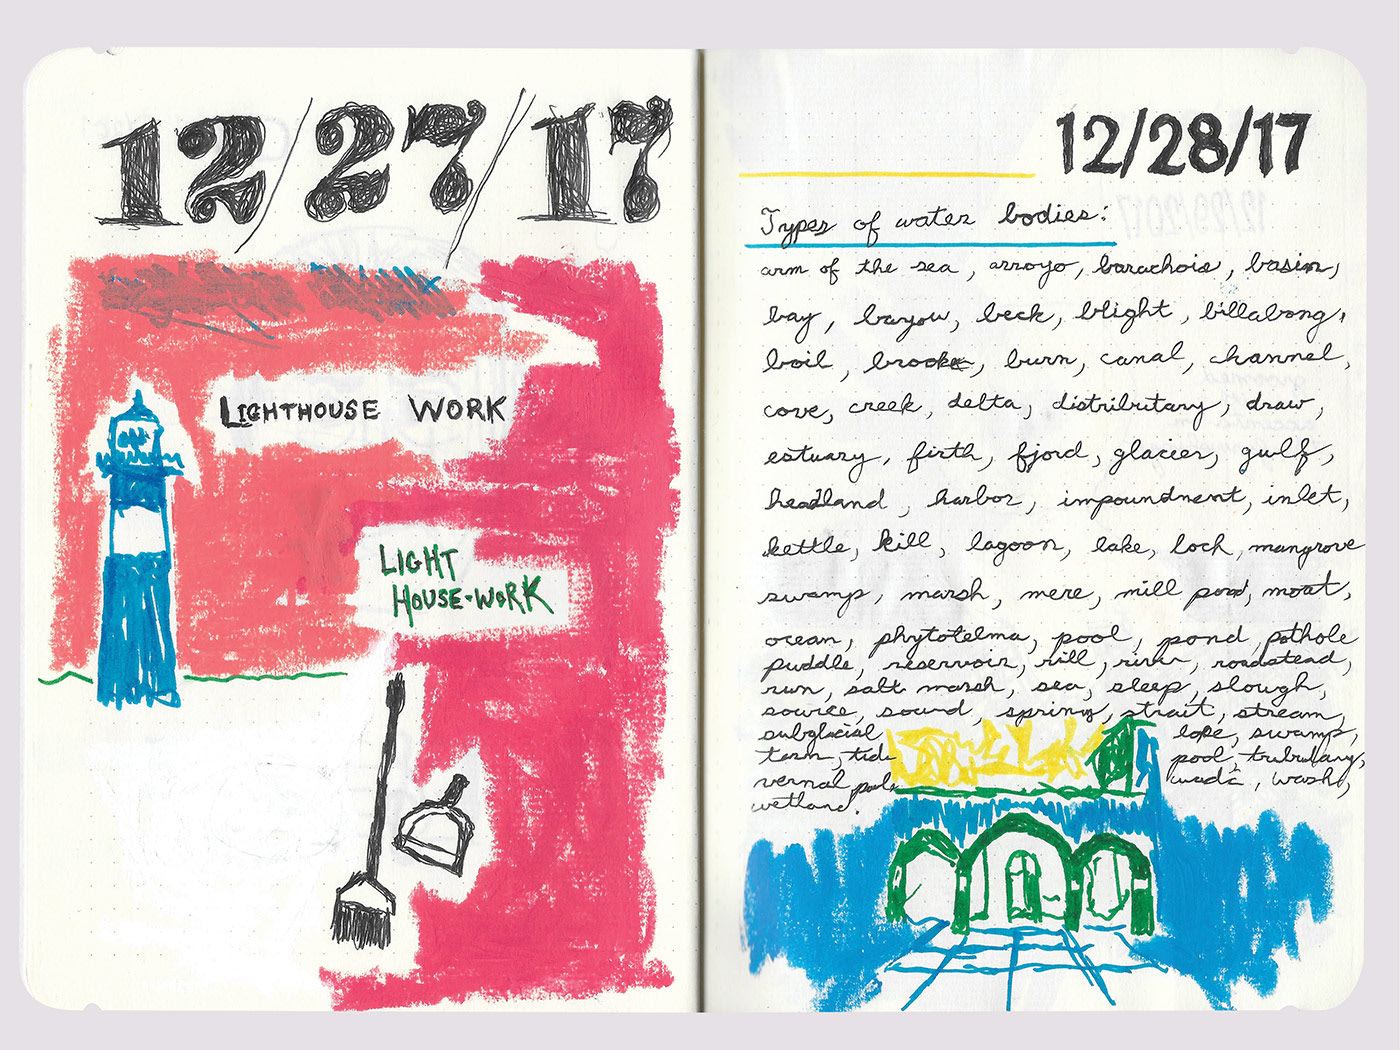 12/27/17
LIGHTHOUSE WORK
LIGHT
HOUSE-WORK
12/28/17
Types of water bodies:
arm of the sea, arroyo, barachois, basin,
bay, bayou, beck, blight, billabong,
boil, brook, burn, canal, channel,
cove, creek, delta, distributary, draw,
estuary, firth, fjord, glacier, gulf,
headland, harbor, impoundment, inlet,
kettle, kill, lagoon, lake, loch, mangrove
swamp, marsh, mere, mill pond, moat,
ocean, phytotelma, pool, pond, pothole
puddle, reservoir, rill, river, roadstead,
run, salt marsh, sea, sleep, slough,
source, sound, spring, strait, stream,
subglacial lake, swamp,
tarn, tide pool, tributary,
vernal pools wadi, wash,
wetland.